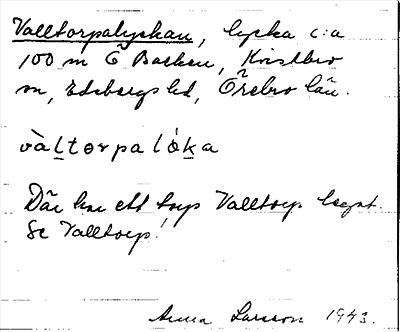 Valltorpalyckan, lycka c:a
100 m Ö Backen, Kvistbro
sn, Edsbergs hd, Örebro län.
vàltorpalóka
Där har ett torp Valltorp legat.
Se Valltorp!
Anna Larsson 1943.